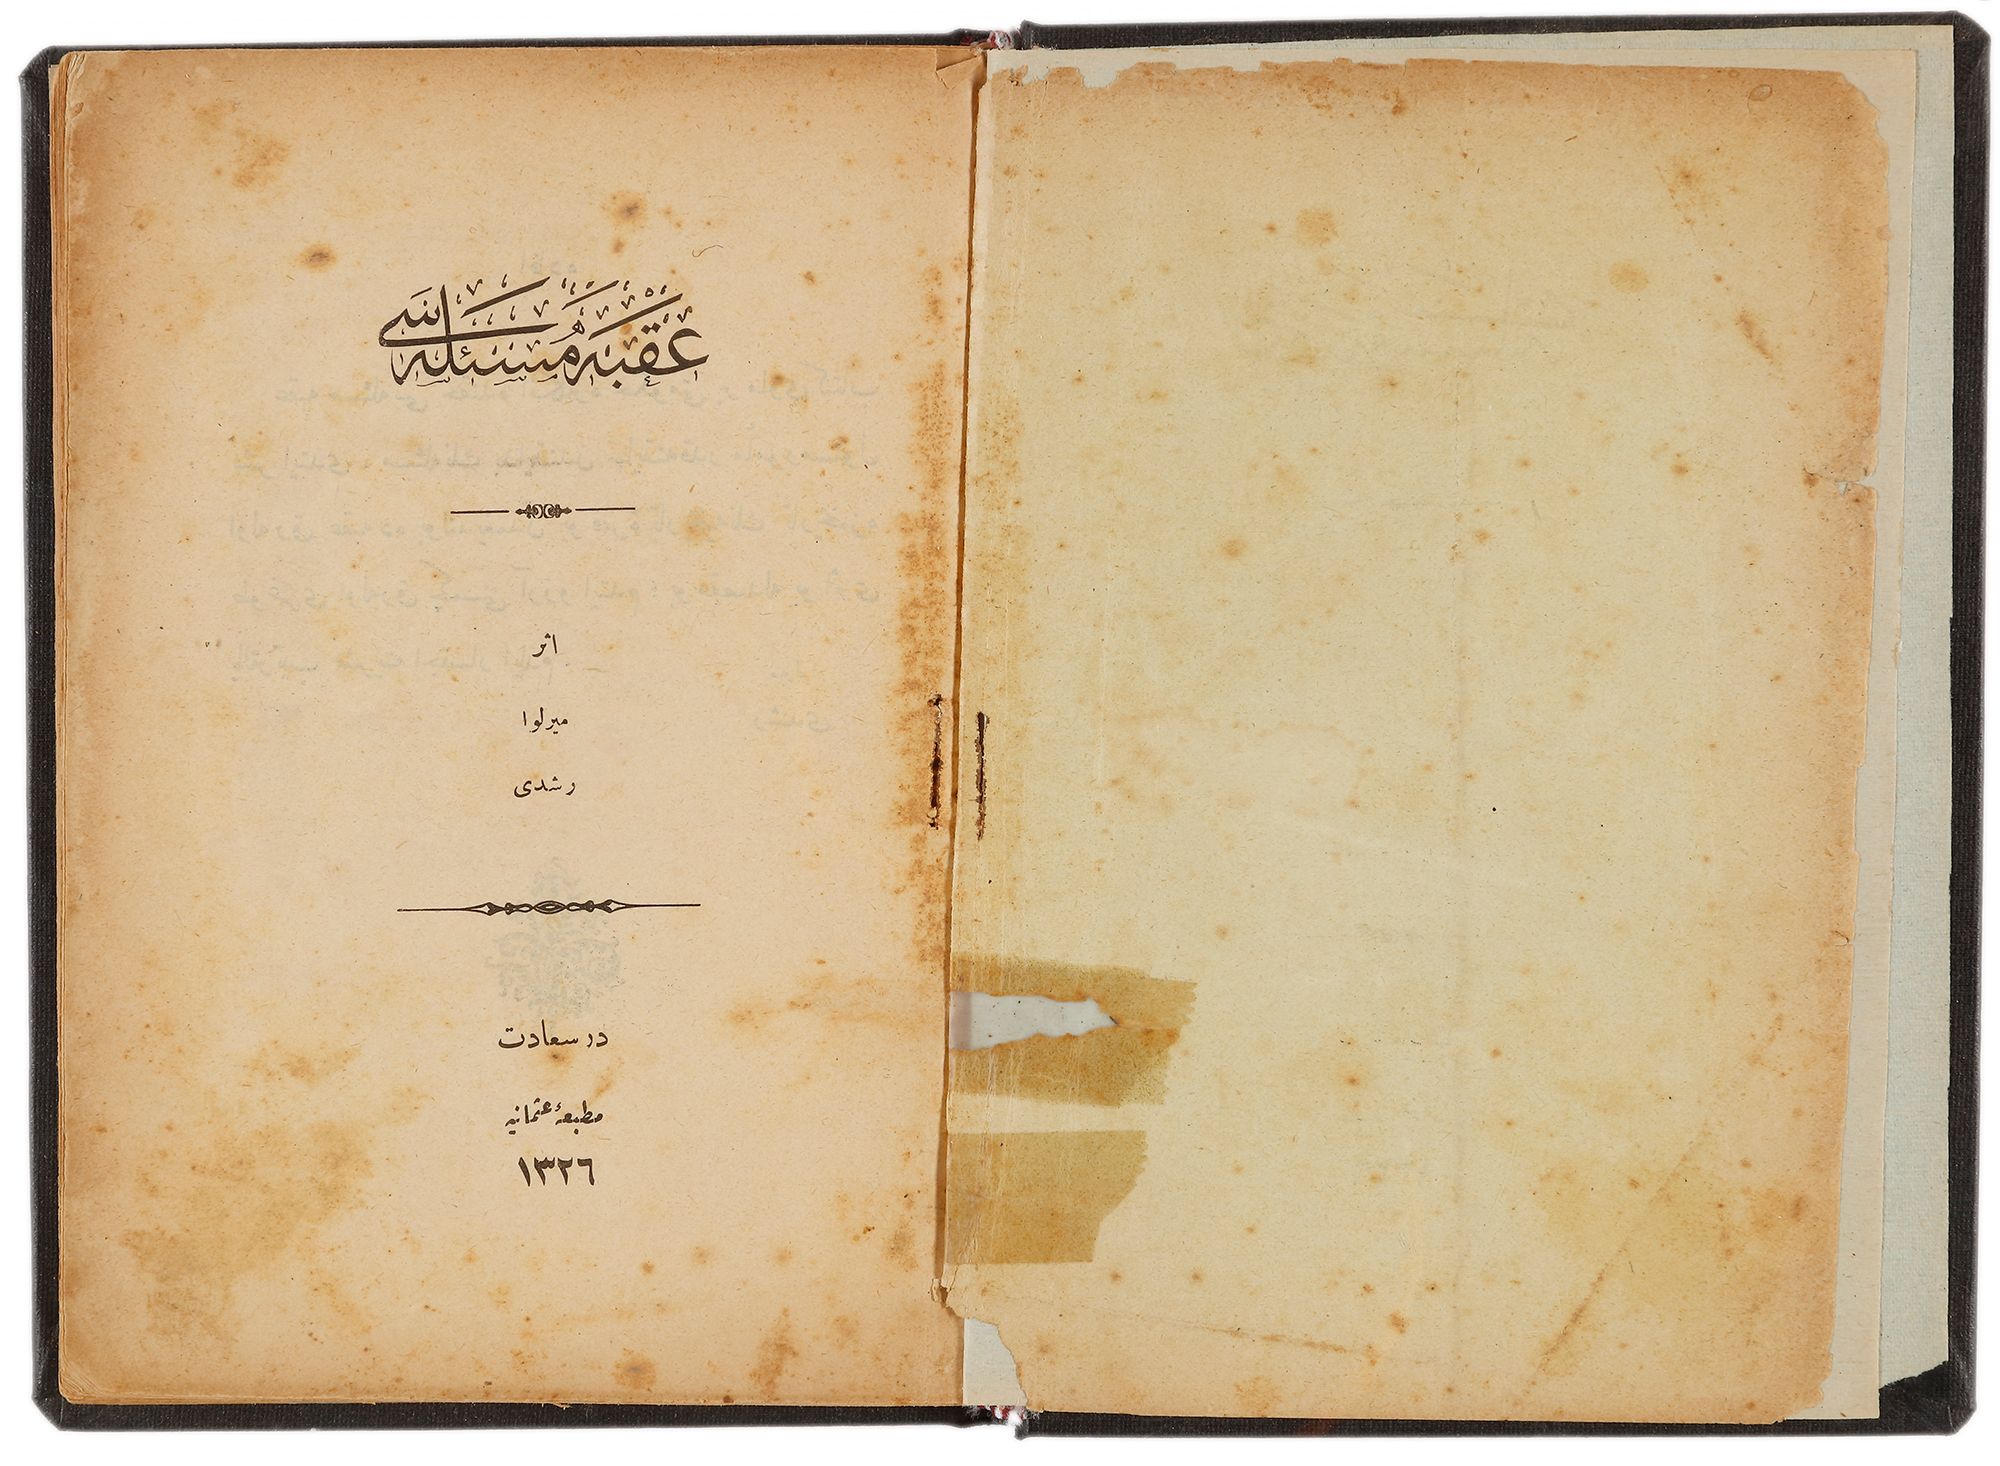 عقبه مسئله سی
اثر
میرلوا
رشدی
در سعادت
مطبعهٔ عثمانیه
١٣٢٦